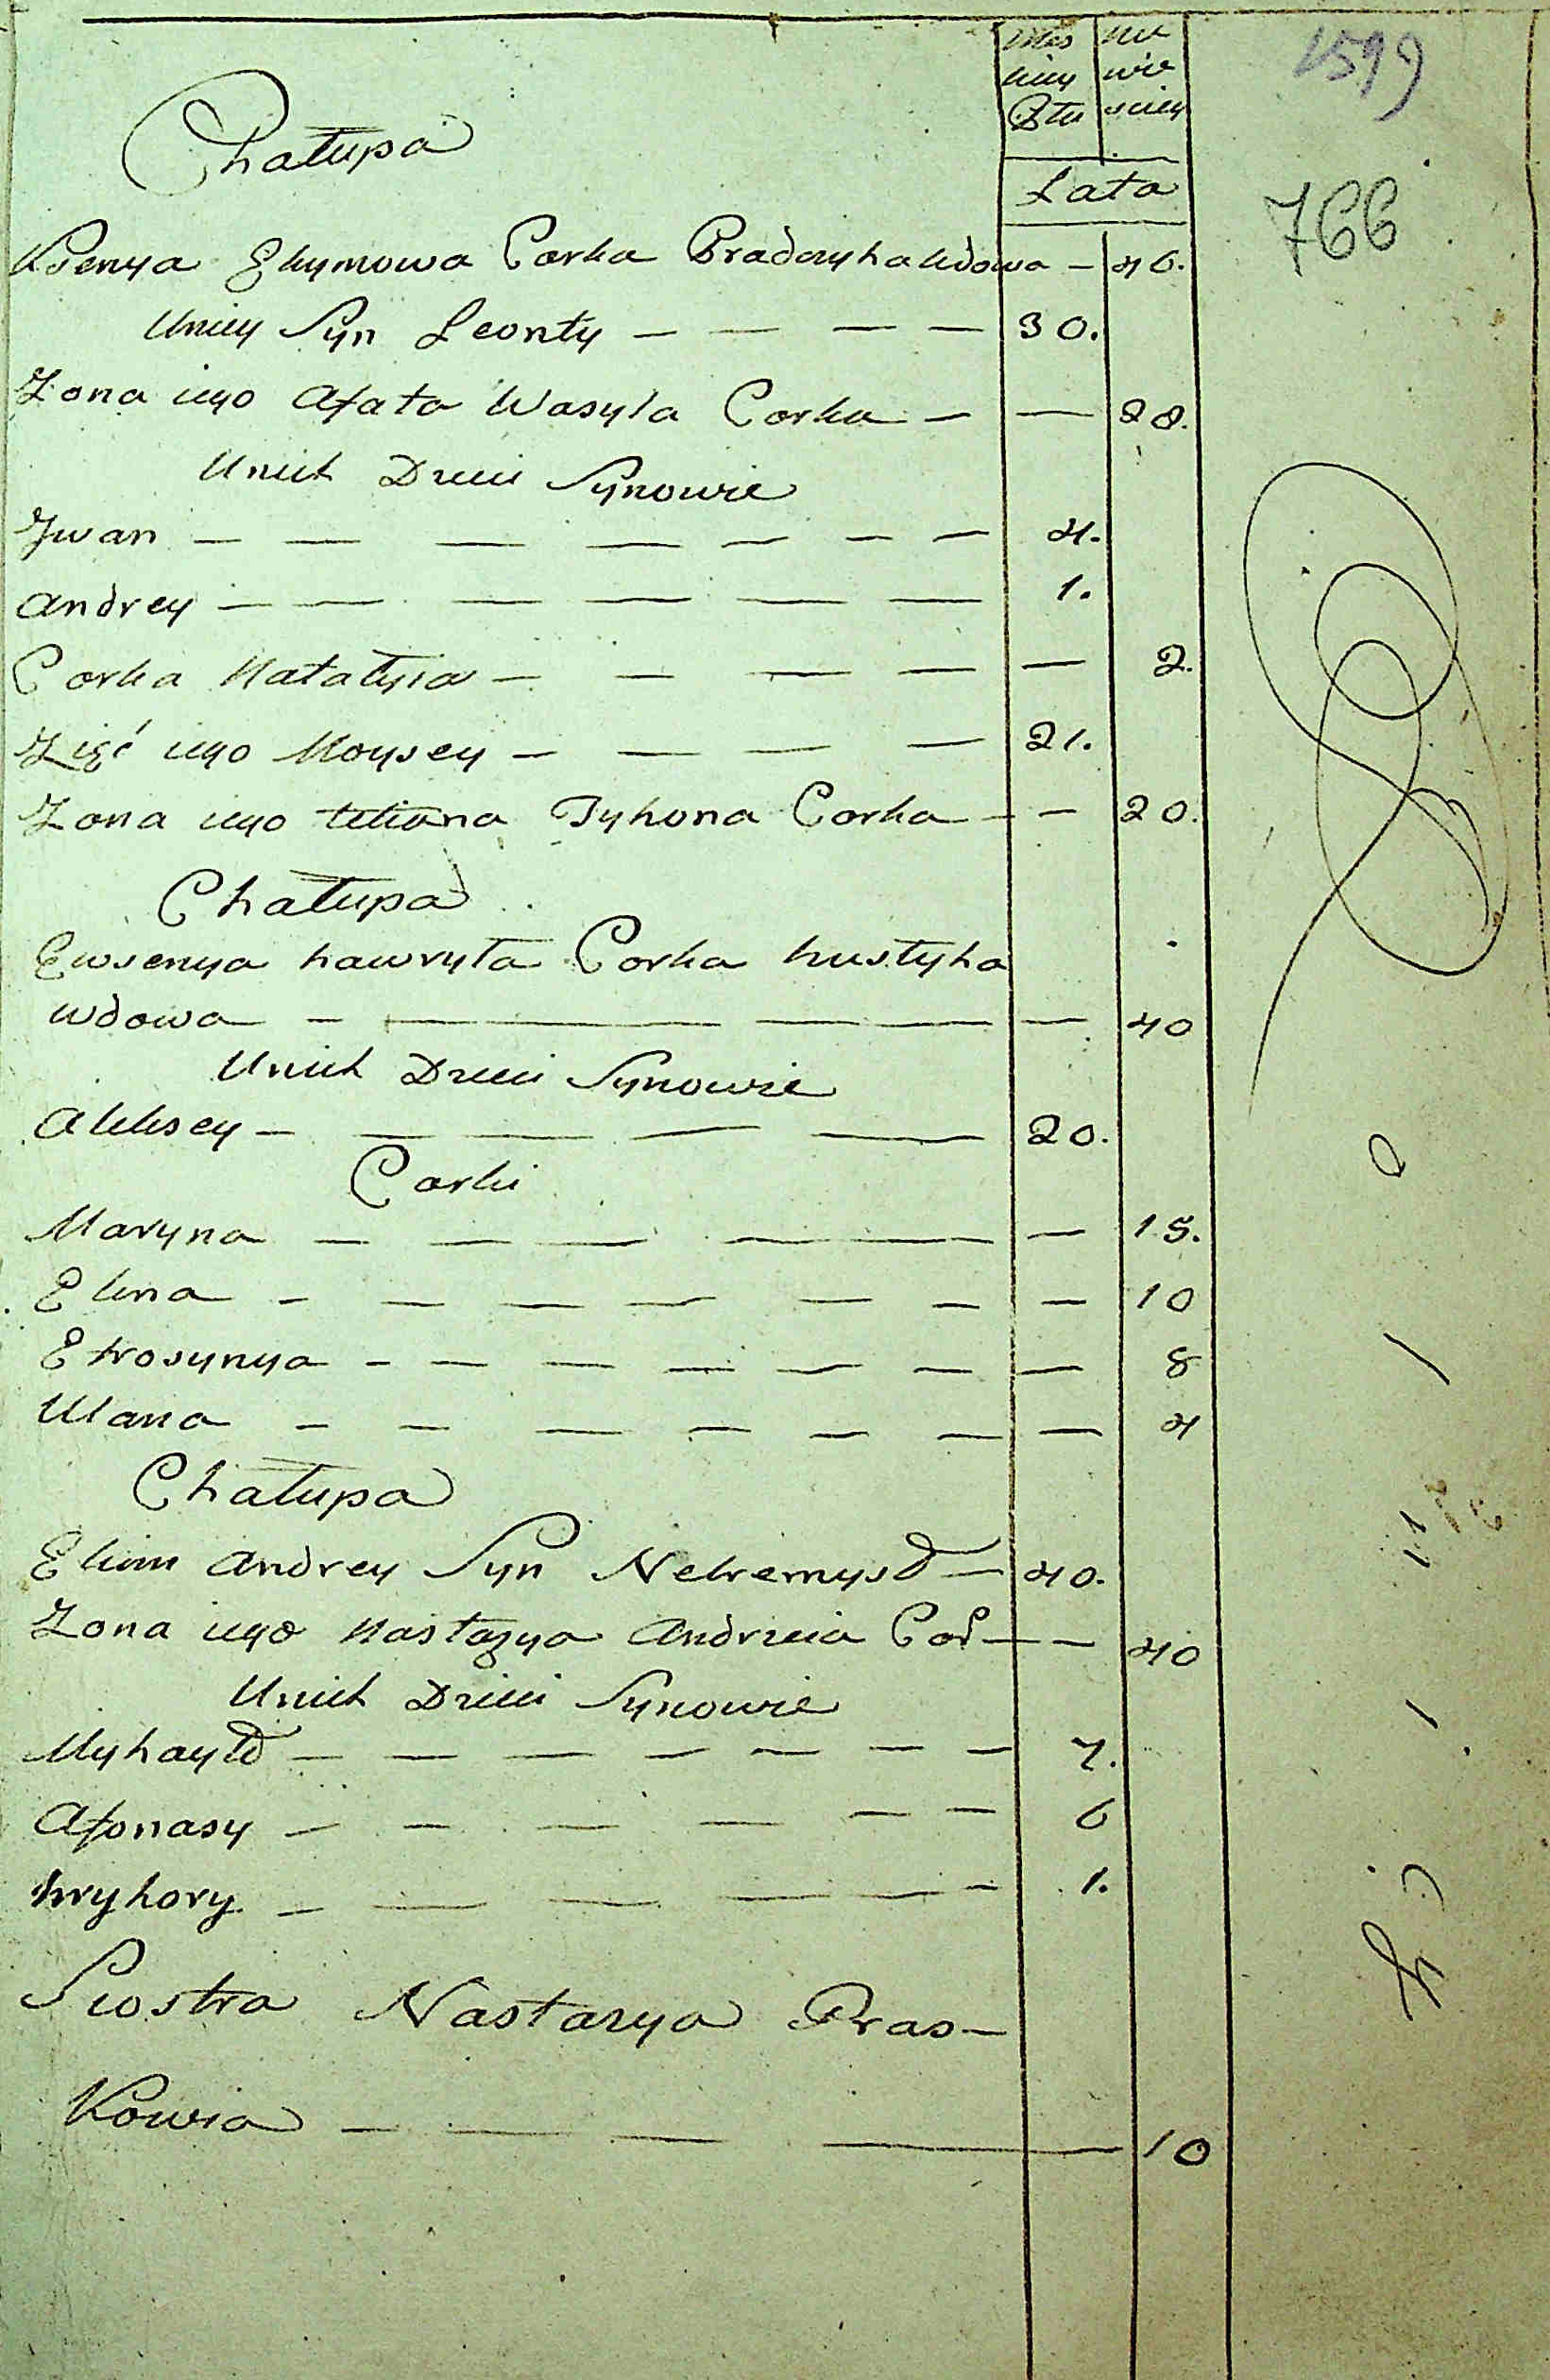 Mes niew
kiey wie
Płu sciey
1599
Chałupa
Lata
766
Ksenya Ekymowa Corka Bradaryha wdowa — 46.
Uniey Syn Leonty — — — — 30.
Zona iego Afata Wasyla Corka — — 28.
Unich Dzieci Synowie
Jwan — — — — — — — 4.
Andrey — — — — — — 1.
Corka Natalyia — — — — — 2.
Zięć iego Moysey — — — — 21.
Zona iego tetiana Tyhona Corka — — 20.
Chałupa
Ewsenya hawryła Corka hustyha
wdowa — — — — 40
Unich Dzieci Synowie
Aleksey — — — — — 20.
Corki
Maryna — — — — — — 15.
Elena — — — — — — — 10
Efrosynya — — — — — — — 8
Ulana — — — — — — — 4
Chałupa
Ekim Andrey Syn — 40.
Zona iego Nastazya Andrzeia Cor — — 40
Unich Dzieci Synowie
Myhayło — — — — — — — 7.
Afonasy — — — — — — 6
hryhory — — — — — 1.
Siostra Nastazya Pras-
Kowia — — — — 10